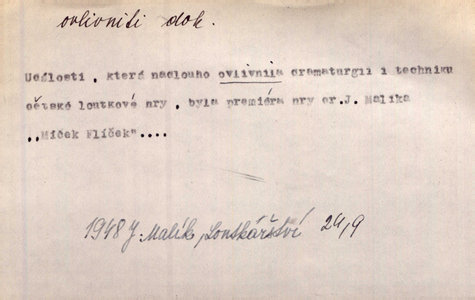 ovlivniti dok.
Událostí , která nadlouho ovlivnila dramaturgii i techniku
dětské loutkové hry , byla premiéra hry dr.J. Malíka
„Míček Flíček"....
1948 J. Malík, Loutkářství 24,9